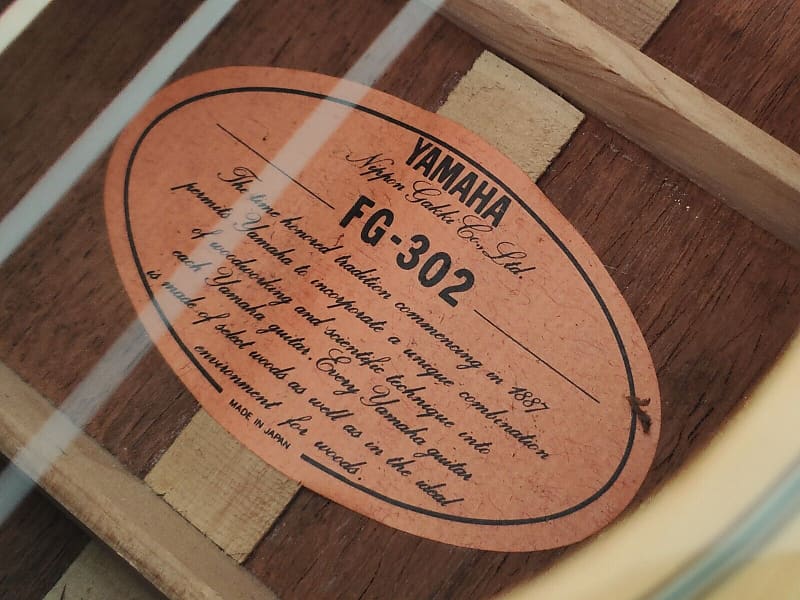 YAMAHA
Nippon Gakki Co., Ltd.
FG-302
The time honored tradition commencing in 1887
permits Yamaha to incorporate a unique combination
of woodworking and scientific technique into
each Yamaha guitar. Every Yamaha guitar
is made of select woods as well as in the ideal
environment for woods.
MADE IN JAPAN